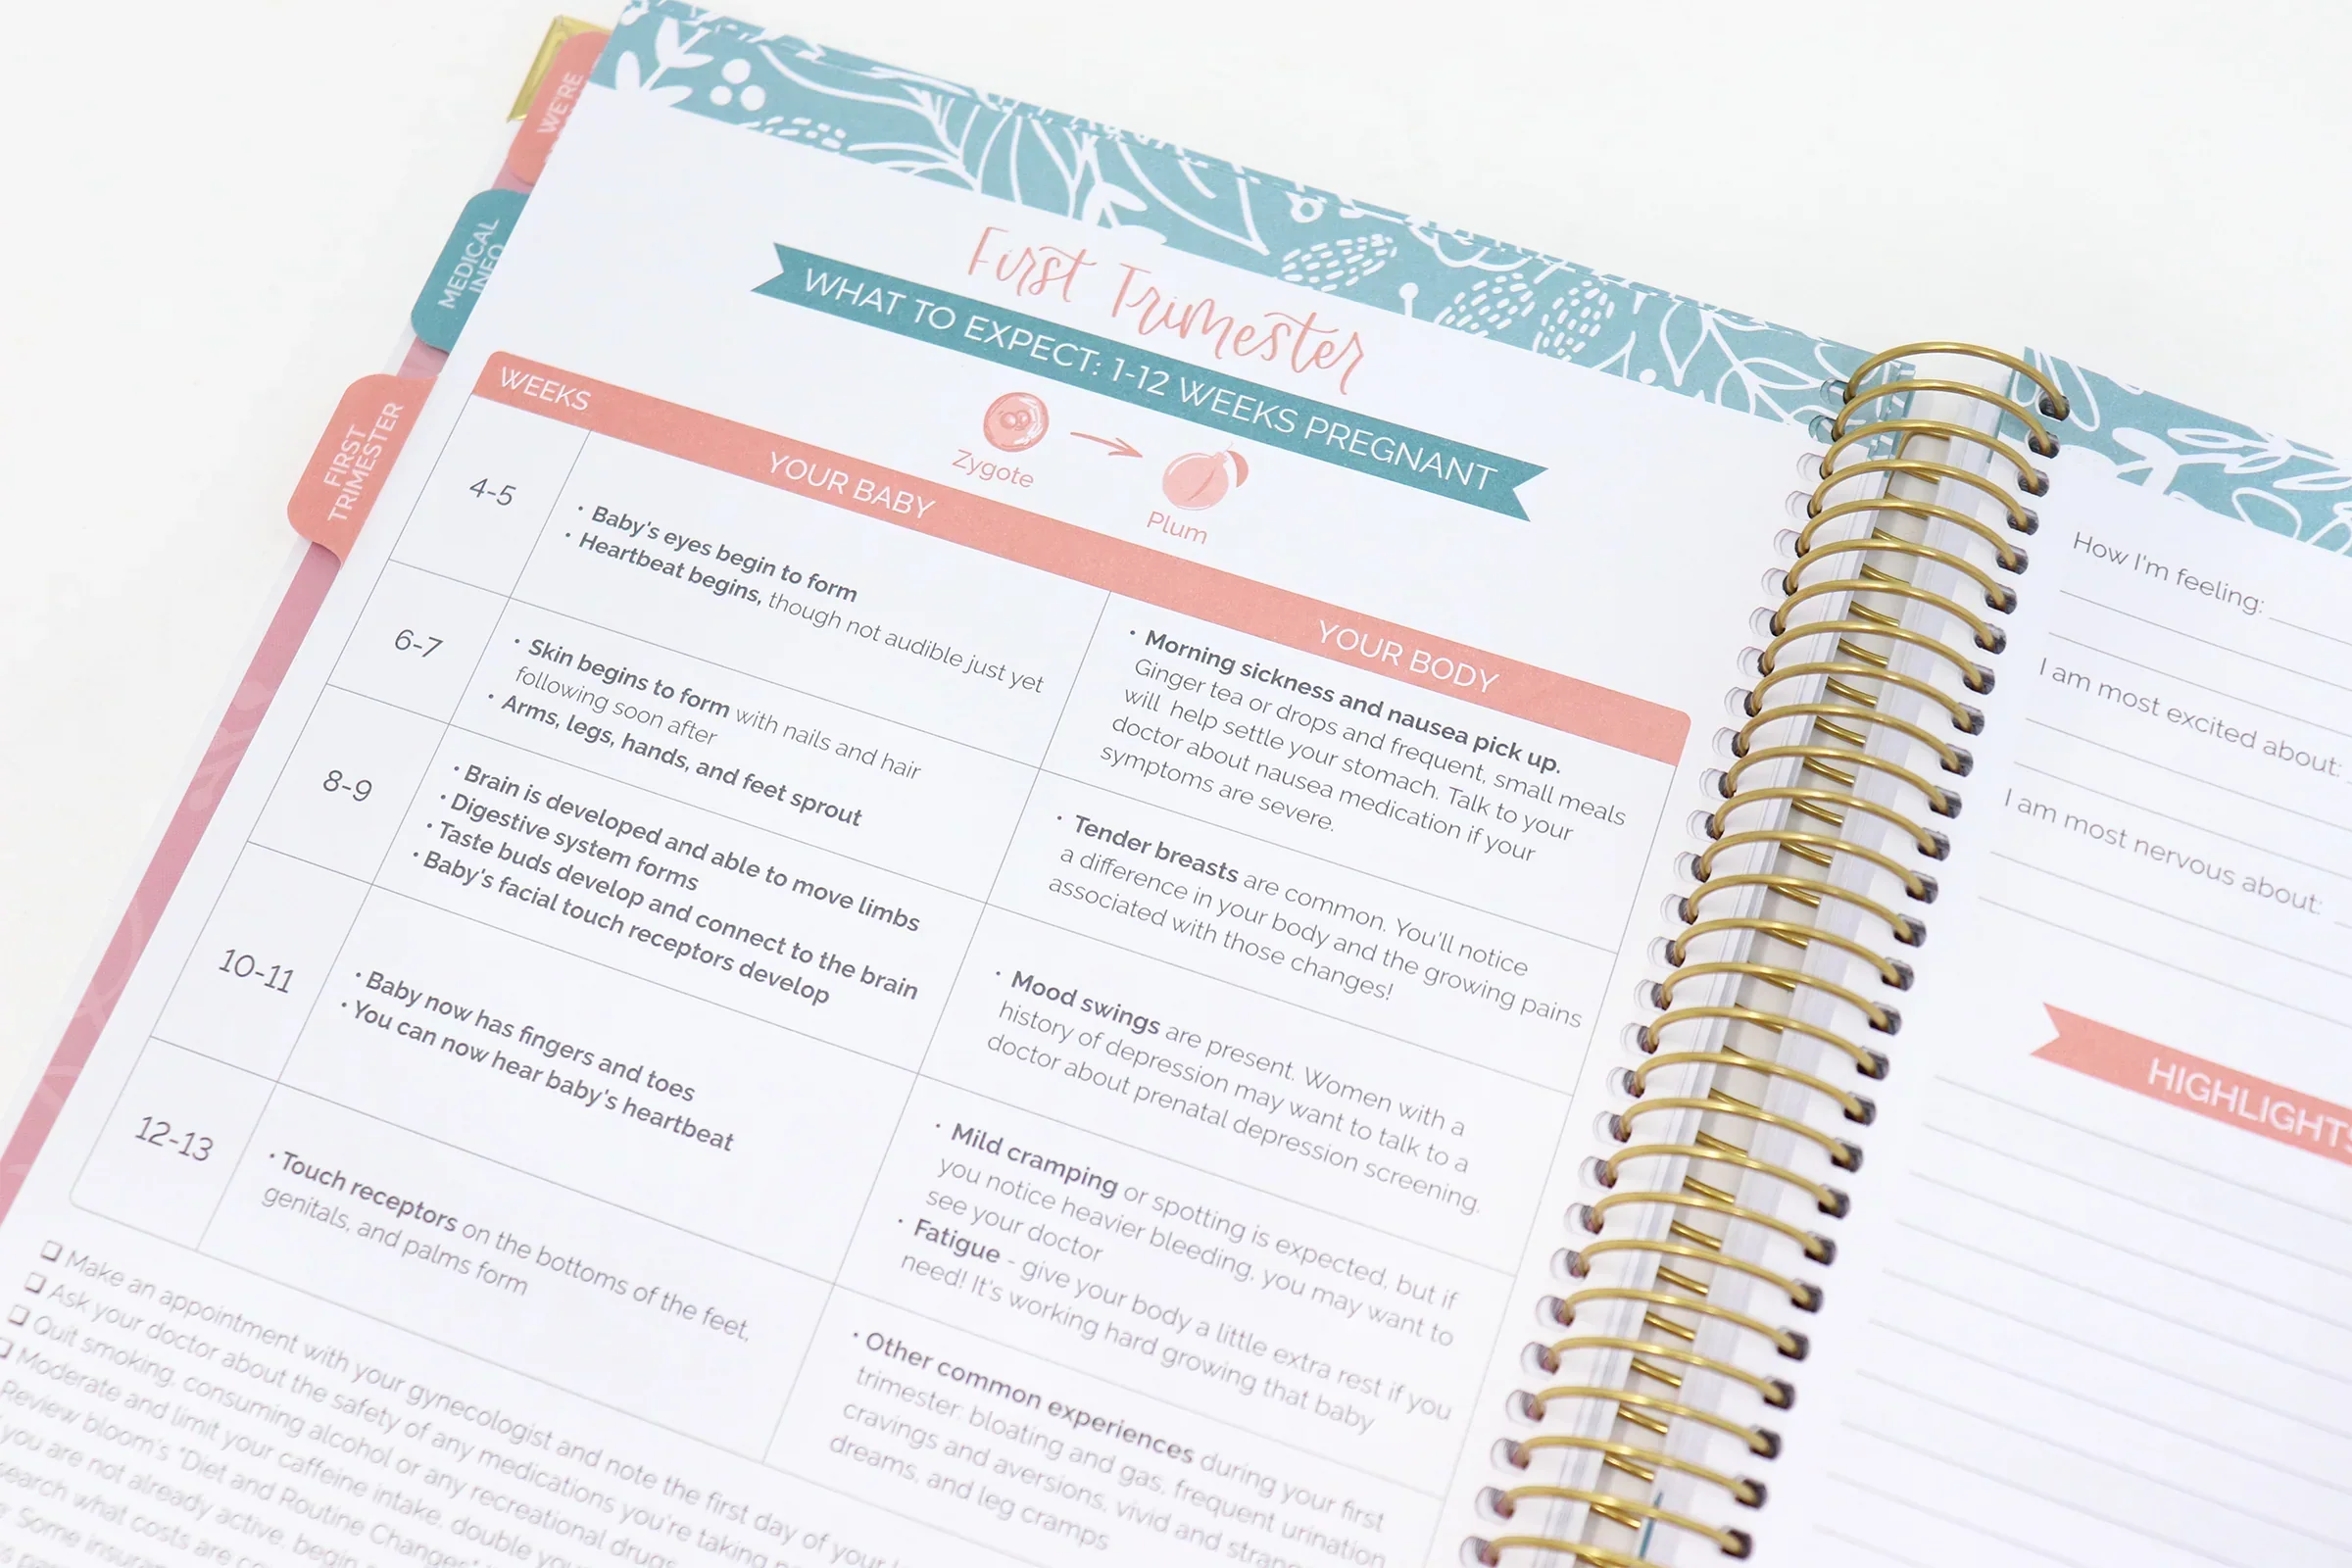 WE'RE
MEDICAL
INFO
FIRST
TRIMESTER
First Trimester
WHAT TO EXPECT: 1-12 WEEKS PREGNANT
Zygote
Plum
WEEKS
YOUR BABY
YOUR BODY
4-5
• Baby's eyes begin to form
• Heartbeat begins, though not audible just yet
• Morning sickness and nausea pick up.
Ginger tea or drops and frequent, small meals
will help settle your stomach. Talk to your
doctor about nausea medication if your
symptoms are severe.
6-7
• Skin begins to form with nails and hair
following soon after
• Arms, legs, hands, and feet sprout
• Tender breasts are common. You'll notice
a difference in your body and the growing pains
associated with those changes!
8-9
• Brain is developed and able to move limbs
• Digestive system forms
• Taste buds develop and connect to the brain
• Baby's facial touch receptors develop
• Mood swings are present. Women with a
history of depression may want to talk to a
doctor about prenatal depression screening.
10-11
• Baby now has fingers and toes
• You can now hear baby's heartbeat
• Mild cramping or spotting is expected, but if
you notice heavier bleeding, you may want to
see your doctor
• Fatigue - give your body a little extra rest if you
need! It's working hard growing that baby
12-13
• Touch receptors on the bottoms of the feet,
genitals, and palms form
• Other common experiences during your first
trimester: bloating and gas, frequent urination
cravings and aversions, vivid and
dreams, and leg cramps
Make an appointment with your gynecologist and note the first day of your
Ask your doctor about the safety of any medications you're taking
Quit smoking, consuming alcohol or any recreational drugs
Moderate and limit your caffeine intake, double
Review bloom's "Diet and Routine Changes"
you are not already active, begin
what costs are
Some
How I'm feeling:
I am most excited about:
I am most nervous about:
HIGHLIGHTS